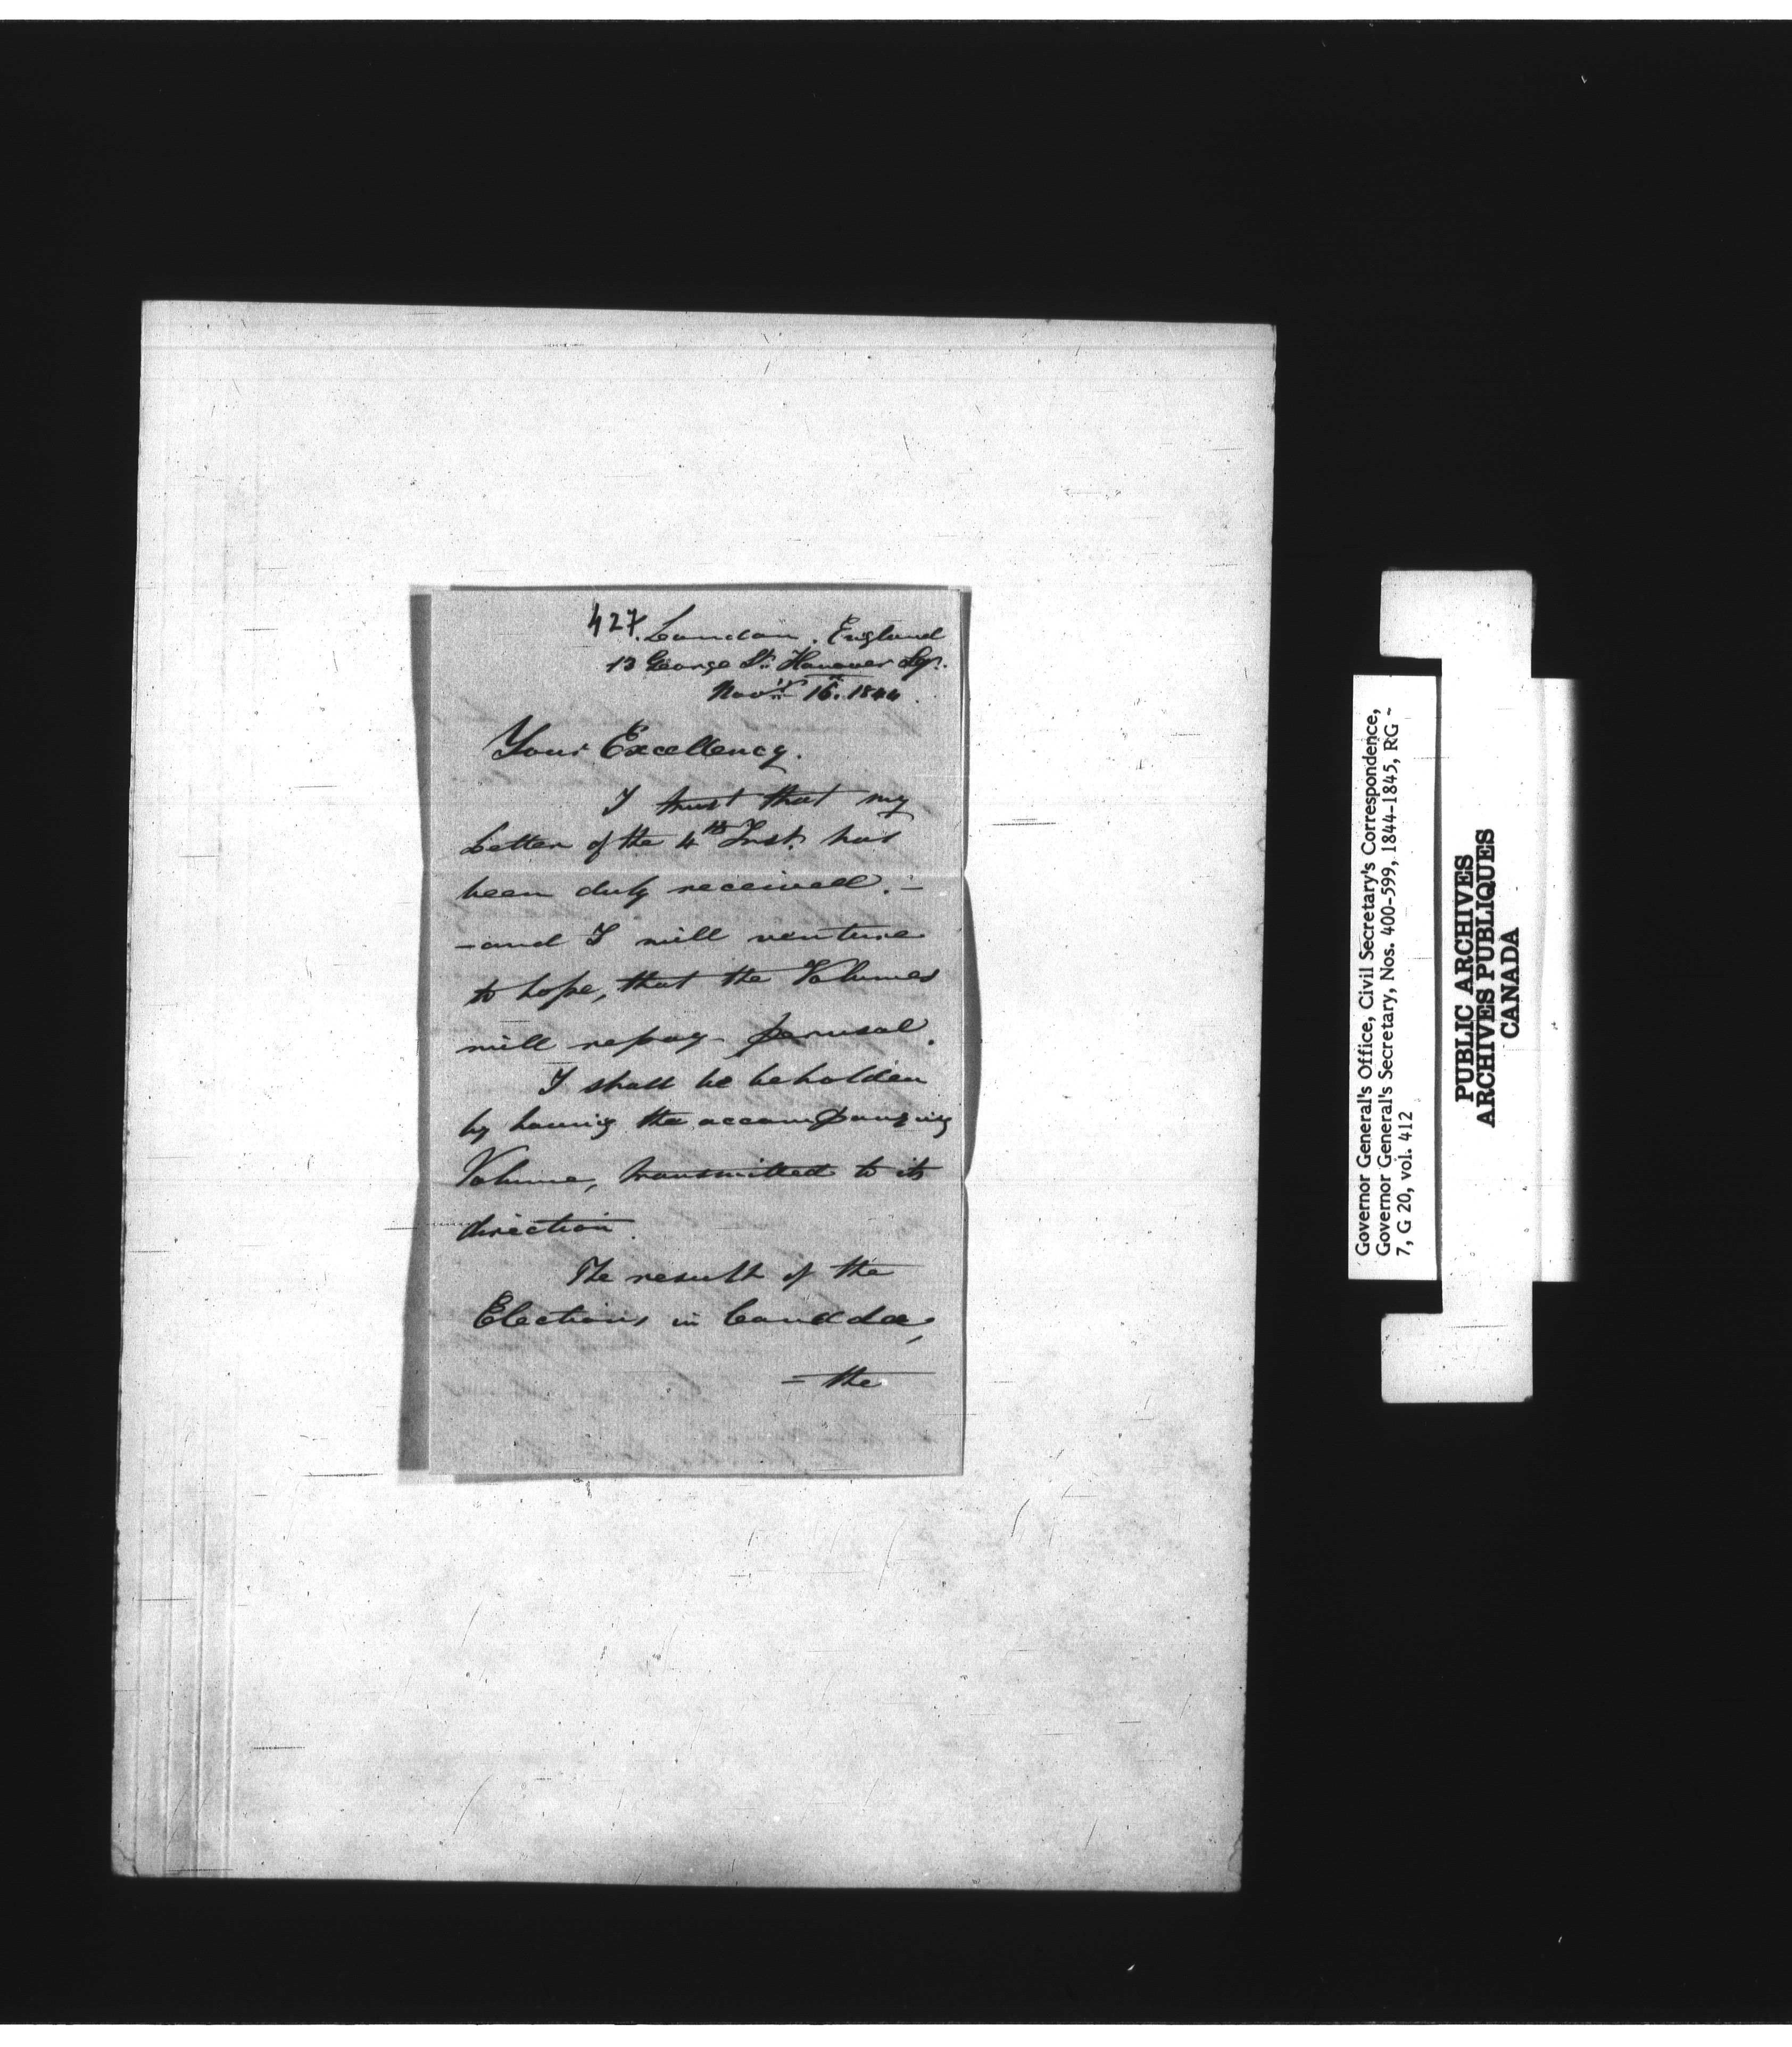 427. London. England
13 George St. Hanover Sqr.
Novr 16. 1844.
Your Excellency.
I trust that my
Letter of the 4th Inst. has
been duly received. –
– and I will venture
to hope, that the Volumes
will repay perusal.
I shall be beholden
by having the accompanying
Volume, transmitted to its
direction.
The result of the
Elections in Canada,
– the
Governor General's Office, Civil Secretary's Correspondence,
Governor General's Secretary, Nos. 400-599, 1844-1845, RG -
7, G 20, vol. 412
PUBLIC ARCHIVES
ARCHIVES PUBLIQUES
CANADA